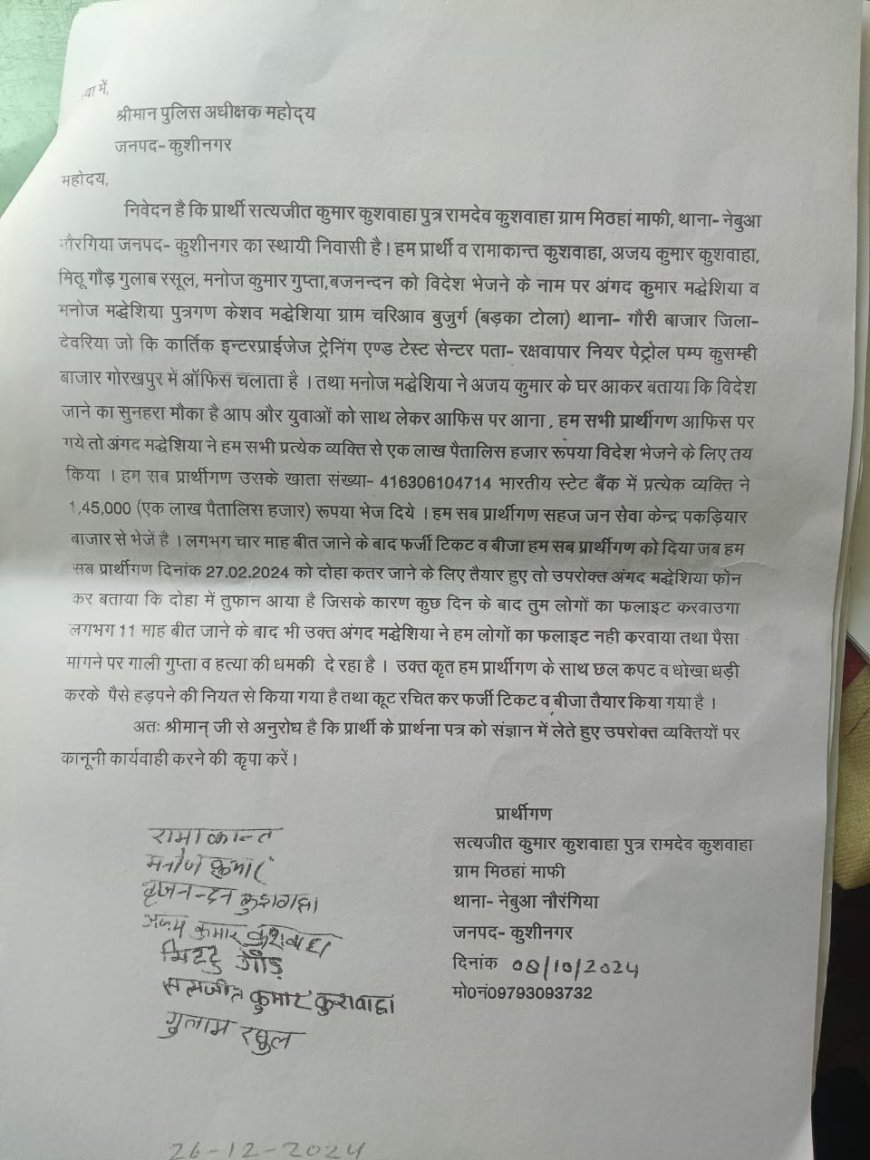 वा में,
श्रीमान पुलिस अधीक्षक महोद्य
जनपद- कुशीनगर
महोदय,
निवेदन है कि प्रार्थी सत्यजीत कुमार कुशवाहा पुत्र रामदेव कुशवाहा ग्राम मिठहां माफी, थाना- नेबुआ
नौरगिया जनपद- कुशीनगर का स्थायी निवासी है । हम प्रार्थी व रामाकान्त कुशवाहा, अजय कुमार कुशवाहा,
मिठू गौड़ गुलाब रसूल, मनोज कुमार गुप्ता,बजनन्दन को विदेश भेजने के नाम पर अंगद कुमार मद्धेशिया व
मनोज मद्धेशिया पुत्रगण केशव मद्धेशिया ग्राम चरिआव बुजुर्ग (बड़का टोला) थाना- गौरी बाजार जिला-
देवरिया जो कि कार्तिक इन्टरप्राईजेज ट्रेनिंग एण्ड टेस्ट सेन्टर पता- रक्षवापार नियर पेट्रोल पम्प कुसम्ही
बाजार गोरखपुर में ऑफिस चलाता है । तथा मनोज मद्धेशिया ने अजय कुमार के घर आकर बताया कि विदेश
जाने का सुनहरा मौका है आप और युवाओं को साथ लेकर आफिस पर आना , हम सभी प्रार्थीगण आफिस पर
गये तो अंगद मद्धेशिया ने हम सभी प्रत्येक व्यक्ति से एक लाख पैतालिस हजार रूपया विदेश भेजने के लिए तय
किया । हम सब प्रार्थीगण उसके खाता संख्या- 416306104714 भारतीय स्टेट बैंक में प्रत्येक व्यक्ति ने
1,45,000 (एक लाख पैतालिस हजार) रूपया भेज दिये । हम सब प्रार्थीगण सहज जन सेवा केन्द्र पकड़ियार
बाजार से भेजें है । लगभग चार माह बीत जाने के बाद फर्जी टिकट व बीजा हम सब प्रार्थीगण को दिया जब हम
सब प्रार्थीगण दिनांक 27.02.2024 को दोहा कतर जाने के लिए तैयार हुए तो उपरोक्त अंगद मद्धेशिया फोन
कर बताया कि दोहा में तुफान आया है जिसके कारण कुछ दिन के बाद तुम लोगों का फलाइट करवाउगा
लगभग 11 माह बीत जाने के बाद भी उक्त अंगद मद्धेशिया ने हम लोगों का फलाइट नही करवाया तथा पैसा
मांगने पर गाली गुप्ता व हत्या की धमकी दे रहा है । उक्त कृत हम प्रार्थीगण के साथ छल कपट व धोखा धड़ी
करके पैसे हड़पने की नियत से किया गया है तथा कूट रचित कर फर्जी टिकट व बीजा तैयार किया गया है ।
अतः श्रीमान् जी से अनुरोध है कि प्रार्थी के प्रार्थना पत्र को संज्ञान में लेते हुए उपरोक्त व्यक्तियों पर
कानूनी कार्यवाही करने की कृपा करें ।
प्रार्थीगण
सत्यजीत कुमार कुशवाहा पुत्र रामदेव कुशवाहा
ग्राम मिठहां माफी
थाना- नेबुआ नौरंगिया
जनपद- कुशीनगर
दिनांक 08/10/2024
मो0नं09793093732
रामाकान्त
मनोज कुमार
वृजनन्दन कुशवाहा
अजय कुमार कुशवाहा
मिटटु गौड़
सत्यजीत कुमार कुशवाहा
गुलाम रसुल
26-12-2024